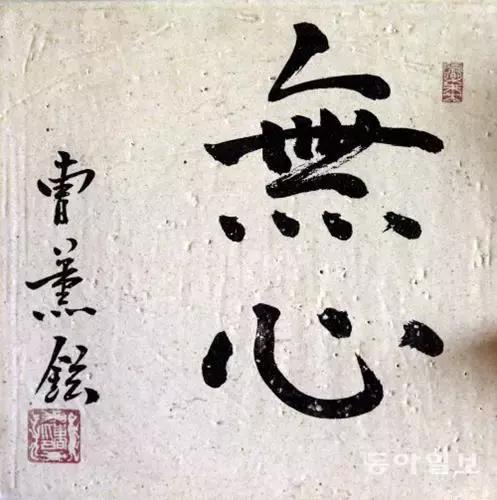 無心
曺薰鉉
동아일보